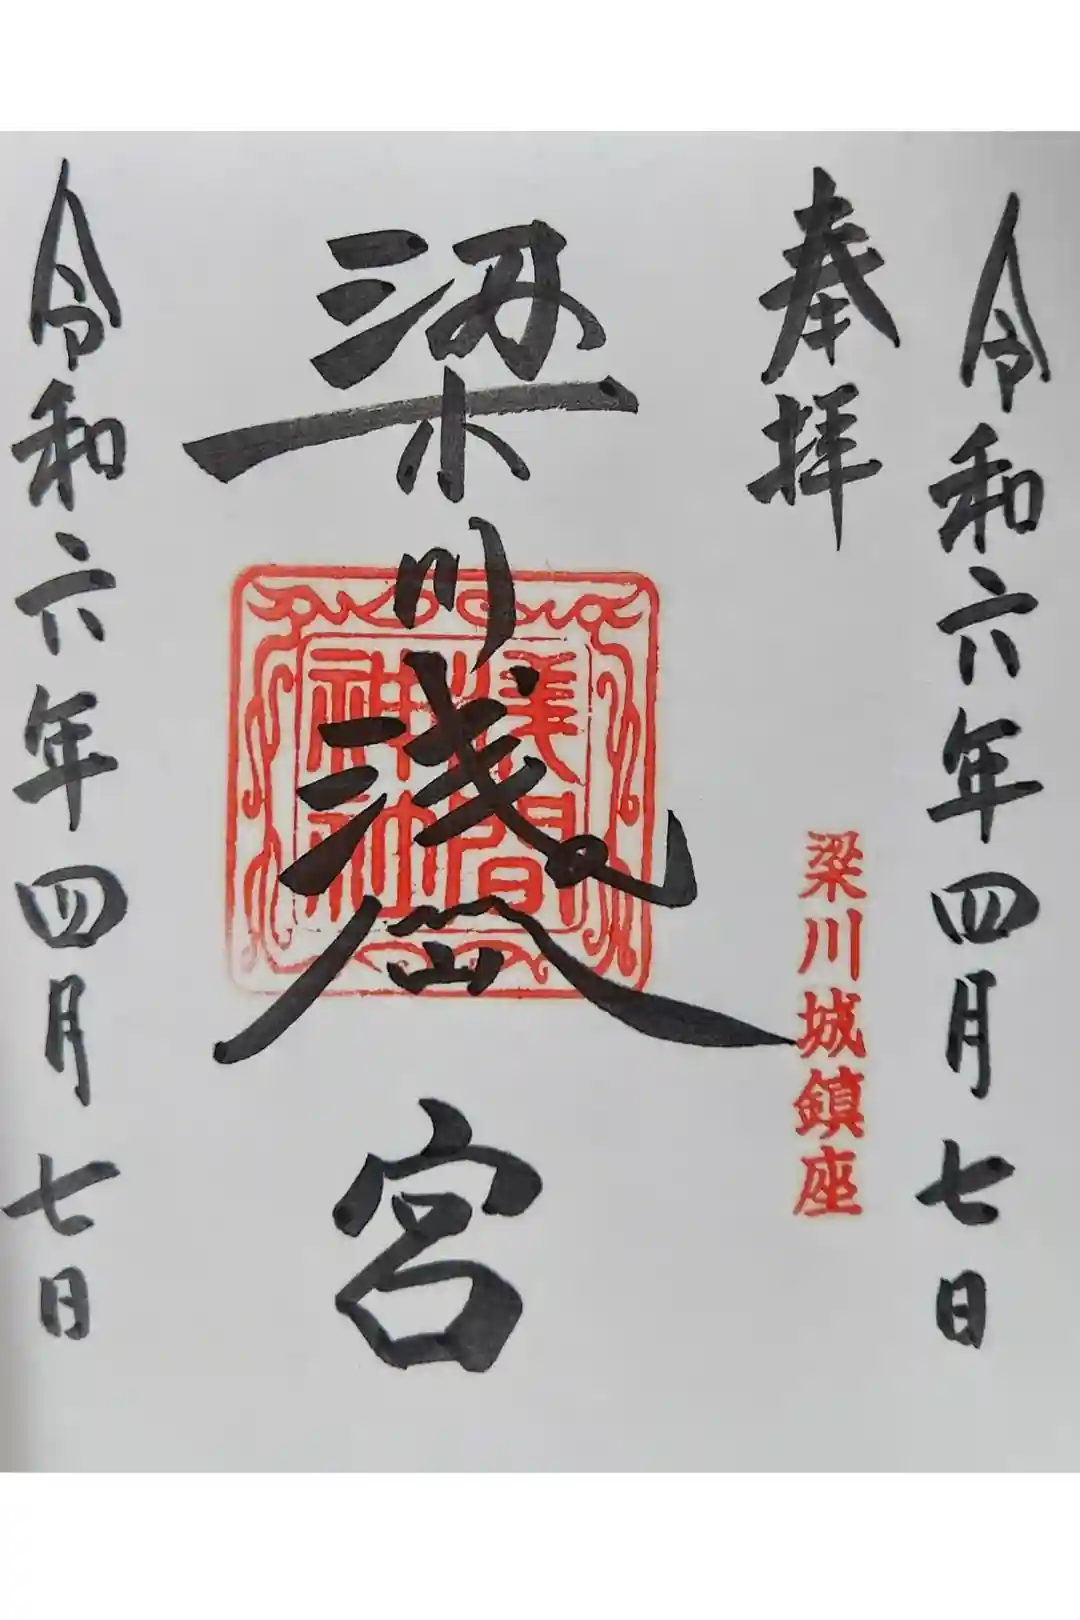 令和六年四月七日
奉拝
梁川城鎮座
梁川浅山宮
淺間神社
令和六年四月七日